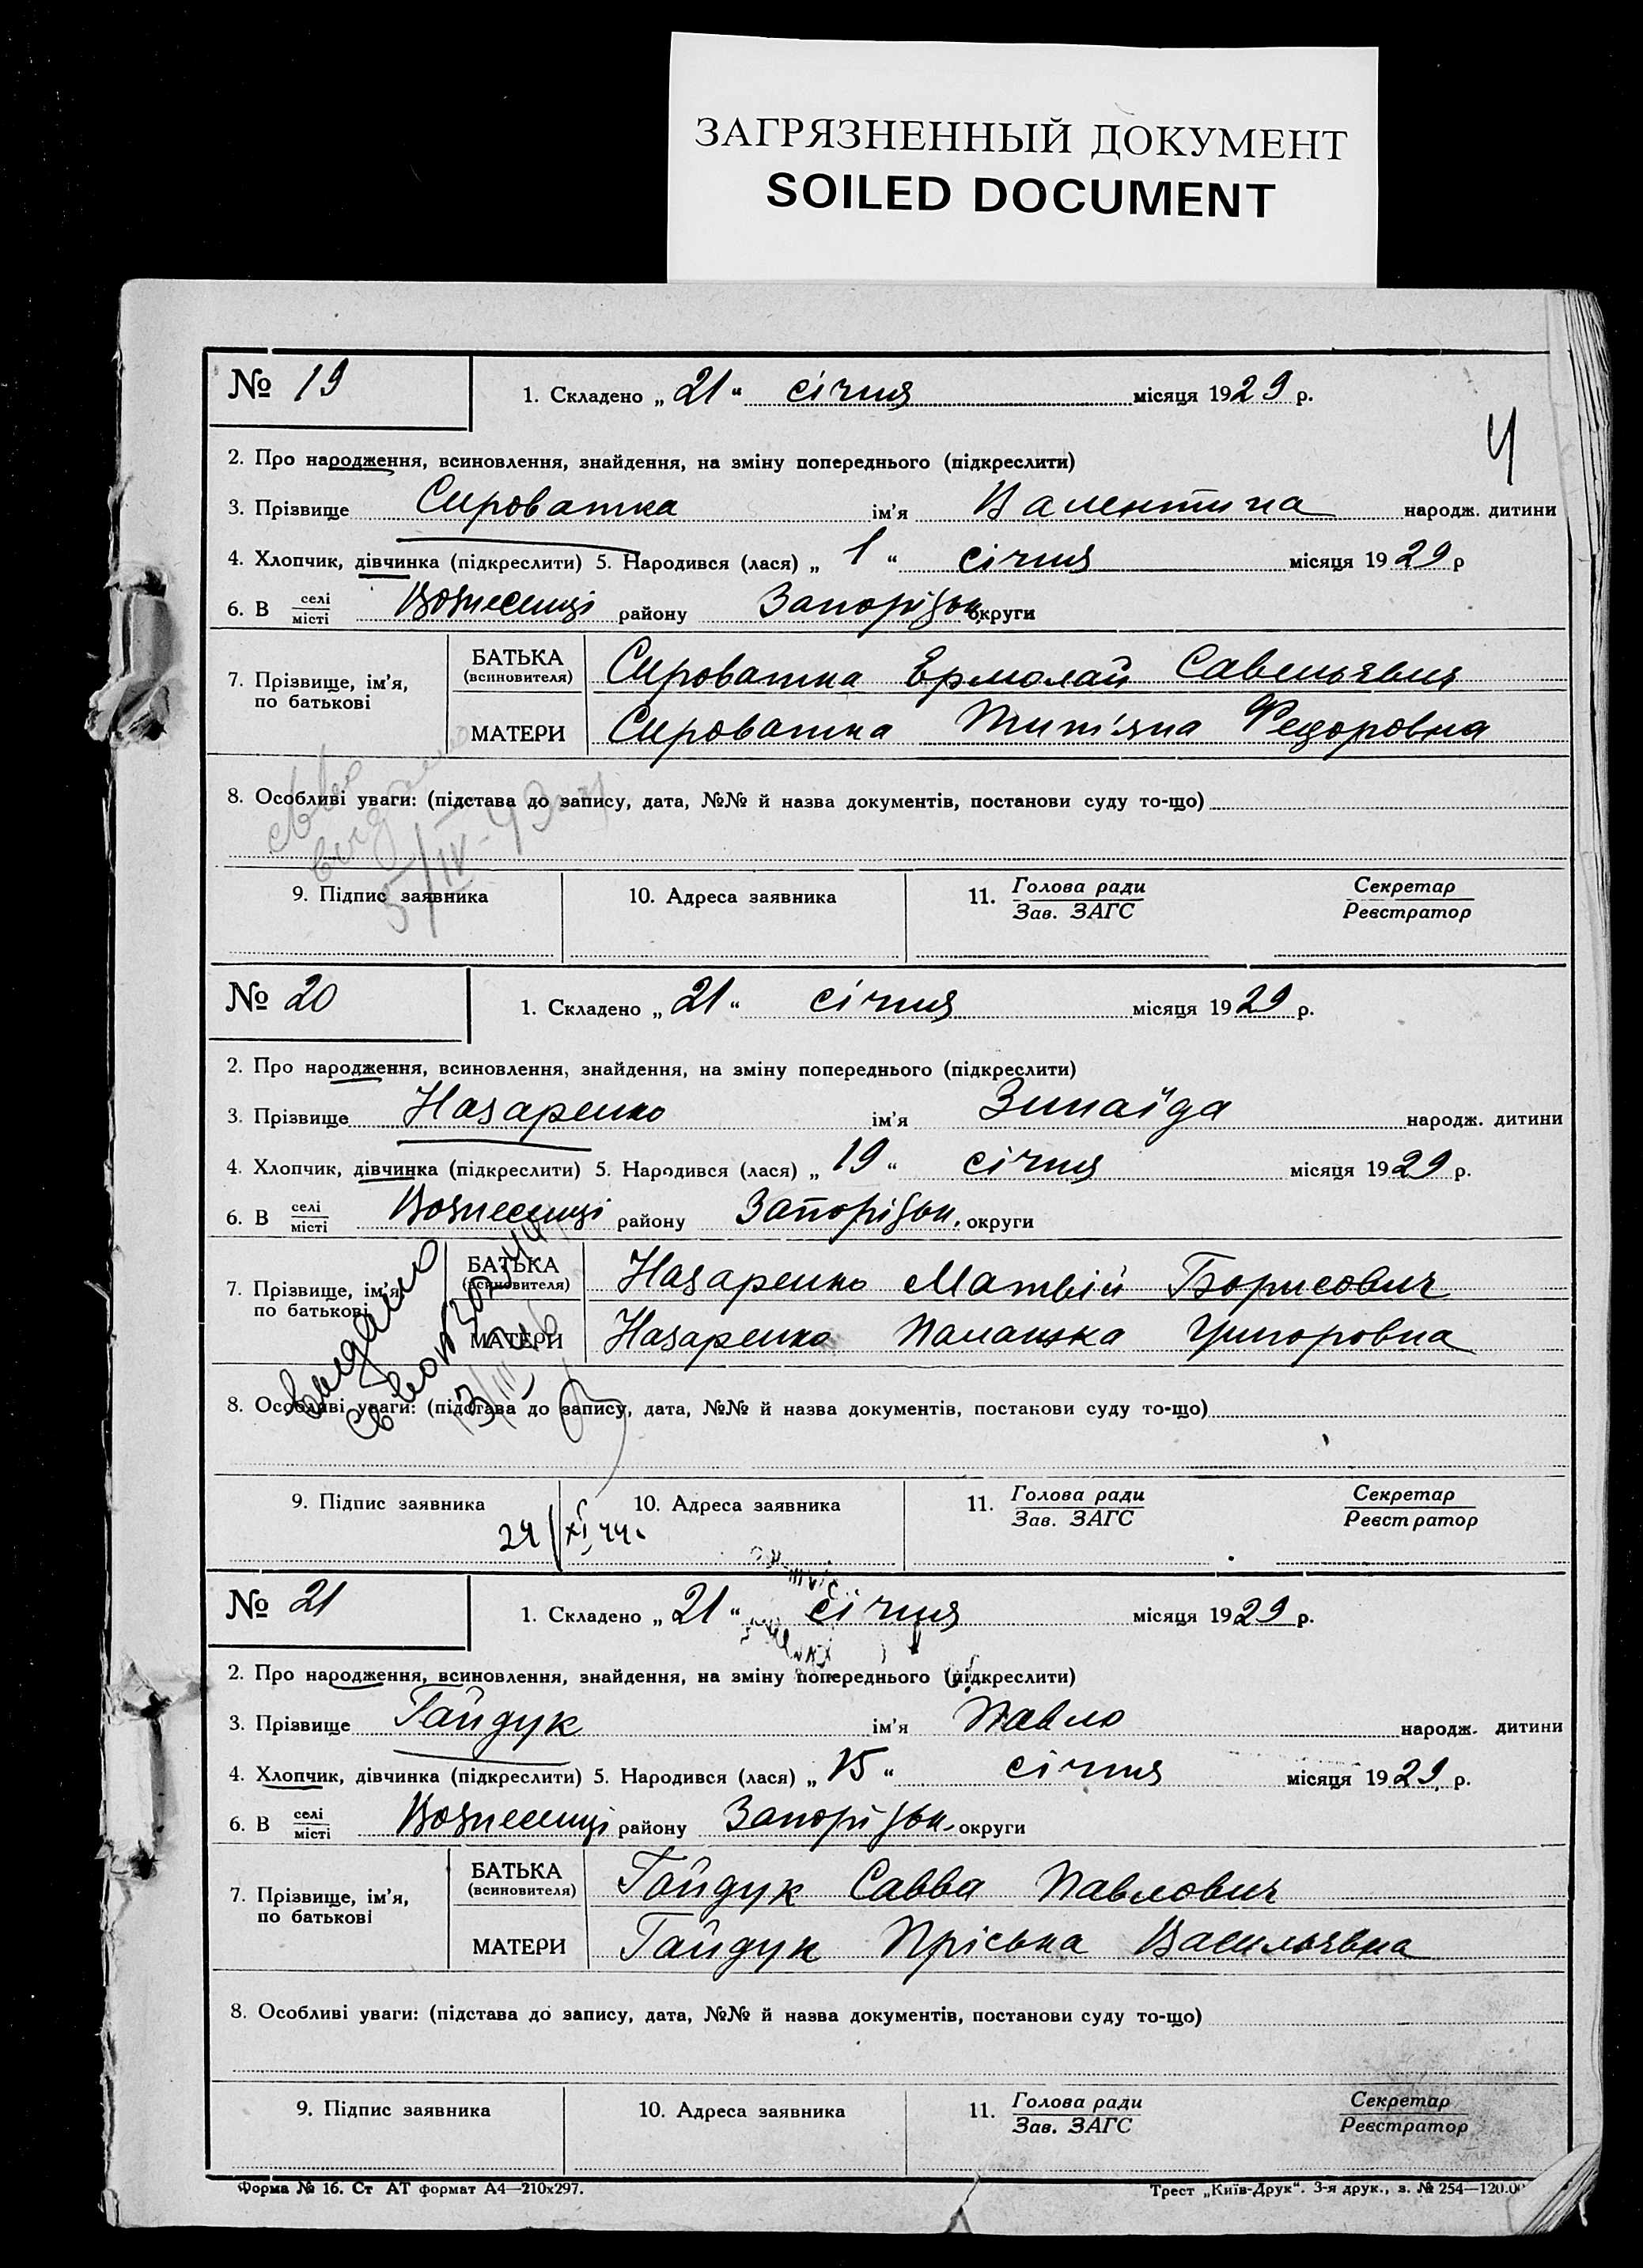 ЗАГРЯЗНЕННЫЙ ДОКУМЕНТ
SOILED DOCUMENT
№ 19
1. Складено „ 21 “ січня місяця 1929 р.
4
2. Про народження, всиновлення, знайдення, на зміну попереднього (підкреслити)
3. Прізвище Сироватка ім'я Валентина народж. дитини
4. Хлопчик, дівчинка (підкреслити) 5. Народився (лася) „ 1 “ січня місяця 1929 р
6. В селі місті Вознесенці району Запорізьк. округи
7. Прізвище, ім'я, по батькові
БАТЬКА (всиновителя) Сироватка Ермолай Савельевич
МАТЕРИ Сироватка Тит'яна Федоровна
8. Особливі уваги: (підстава до запису, дата, №№ й назва документів, постанови суду то-що)
5/IV-43
9. Підпис заявника 10. Адреса заявника 11. Голова ради Зав. ЗАГС Секретар Реєстратор
№ 20
1. Складено „ 21 “ січня місяця 1929 р.
2. Про народження, всиновлення, знайдення, на зміну попереднього (підкреслити)
3. Прізвище Назаренко ім'я Зинаїда народж. дитини
4. Хлопчик, дівчинка (підкреслити) 5. Народився (лася) „ 19 “ січня місяця 1929 р.
6. В селі місті Вознесенці району Запорізьк. округи
7. Прізвище, ім'я, по батькові
БАТЬКА (всиновителя) Назаренко Матвій Борисович
МАТЕРИ Назаренко Палажка Григоровна
8. Особливі уваги: (підстава до запису, дата, №№ й назва документів, постанови суду то-що)
видано
9. Підпис заявника 10. Адреса заявника 11. Голова ради Зав. ЗАГС Секретар Реєстратор
24/XI 44.
№ 21
1. Складено „ 21 “ січня місяця 1929 р.
2. Про народження, всиновлення, знайдення, на зміну попереднього (підкреслити)
3. Прізвище Гайдук ім'я Павло народж. дитини
4. Хлопчик, дівчинка (підкреслити) 5. Народився (лася) „ 15 “ січня місяця 1929 р.
6. В селі місті Вознесенці району Запорізьк. округи
7. Прізвище, ім'я, по батькові
БАТЬКА (всиновителя) Гайдук Савва Павлович
МАТЕРИ Гайдук Пріська Васильевна
8. Особливі уваги: (підстава до запису, дата, №№ й назва документів, постанови суду то-що)
9. Підпис заявника 10. Адреса заявника 11. Голова ради Зав. ЗАГС Секретар Реєстратор
Форма № 16. Ст АТ формат А4—210х297. Трест „Київ-Друк“. 3-я друк., з. № 254—120.00